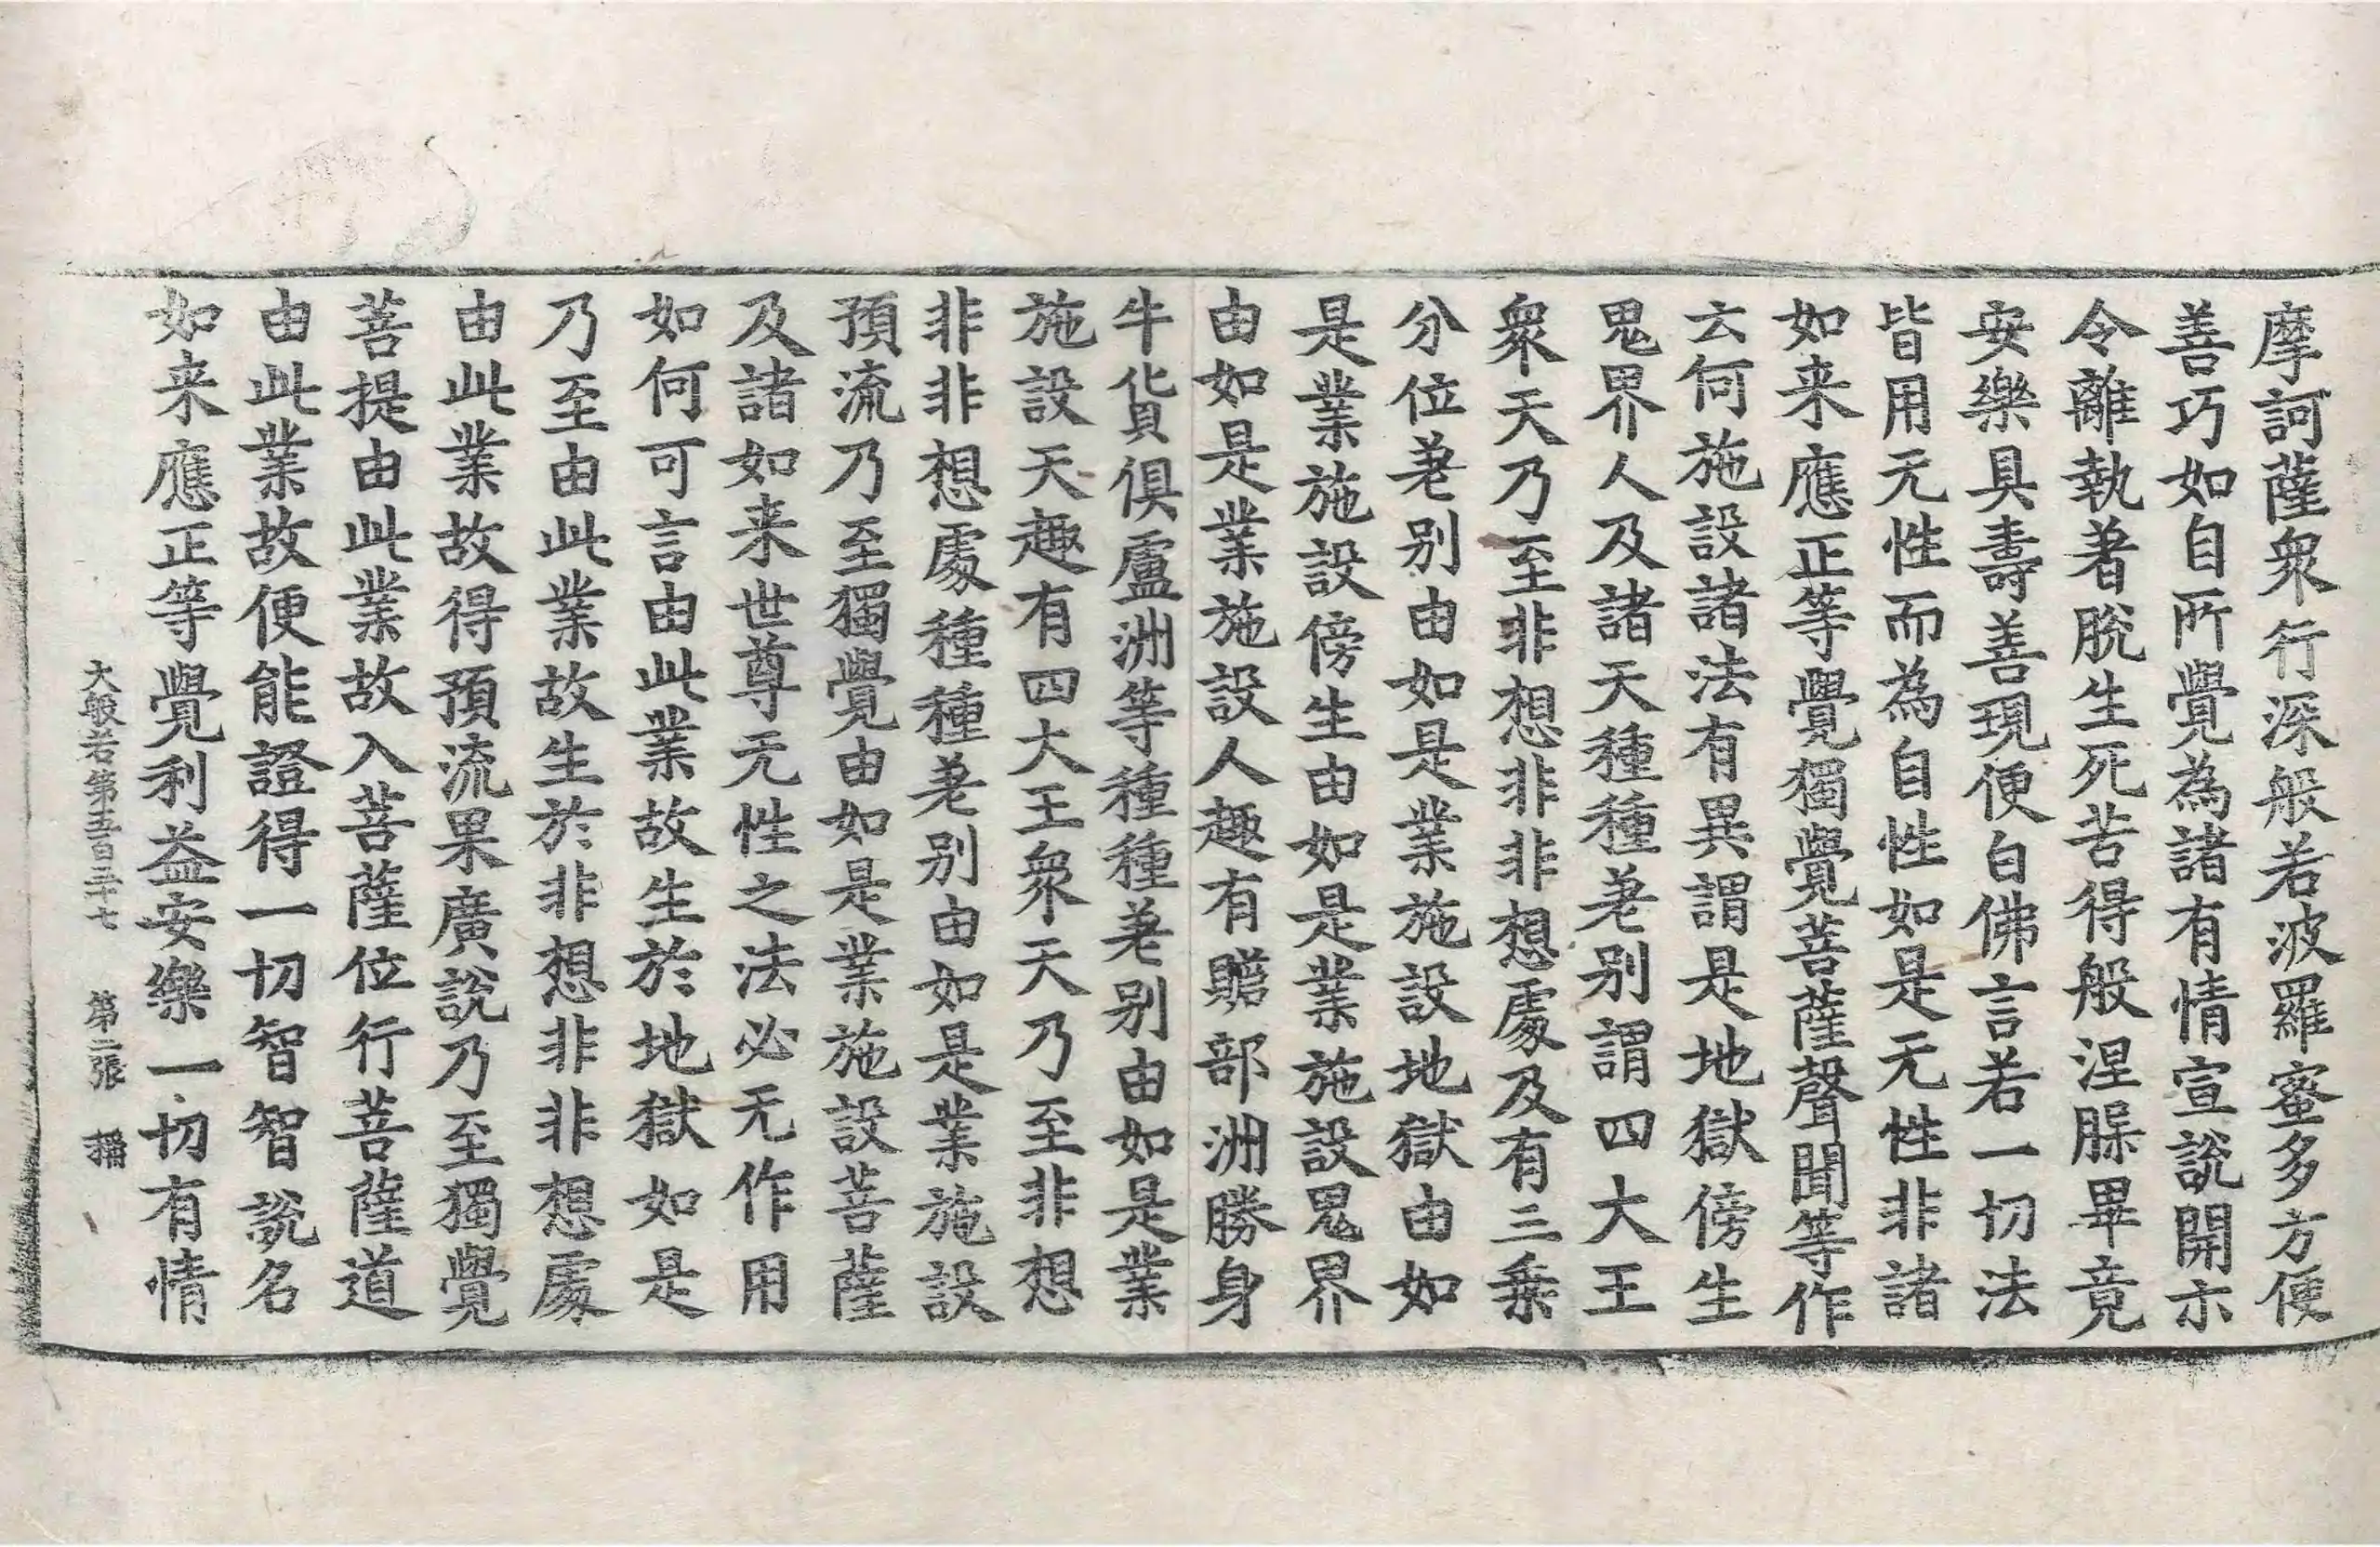 摩訶薩衆行深般若波羅蜜多方便
善巧如自所覺為諸有情宣說開示
令離執著脫生死苦得般涅槃畢竟
安樂具壽善現便白佛言若一切法
皆用无性而為自性如是无性非諸
如来應正等覺獨覺菩薩聲聞等作
云何施設諸法有異謂是地獄傍生
鬼界人及諸天種種差别謂四大王
衆天乃至非想非非想處及有三乗
分位差别由如是業施設地獄由如
是業施設傍生由如是業施設鬼界
由如是業施設人趣有贍部洲勝身
牛貨俱盧洲等種種差别由如是業
施設天趣有四大王衆天乃至非想
非非想處種種差别由如是業施設
預流乃至獨覺由如是業施設菩薩
及諸如来世尊无性之法必无作用
如何可言由此業故生於地獄如是
乃至由此業故生於非想非非想處
由此業故得預流果廣說乃至獨覺
菩提由此業故入菩薩位行菩薩道
由此業故便能證得一切智智說名
如来應正等覺利益安樂一切有情
大般若第五百三十七　第二張